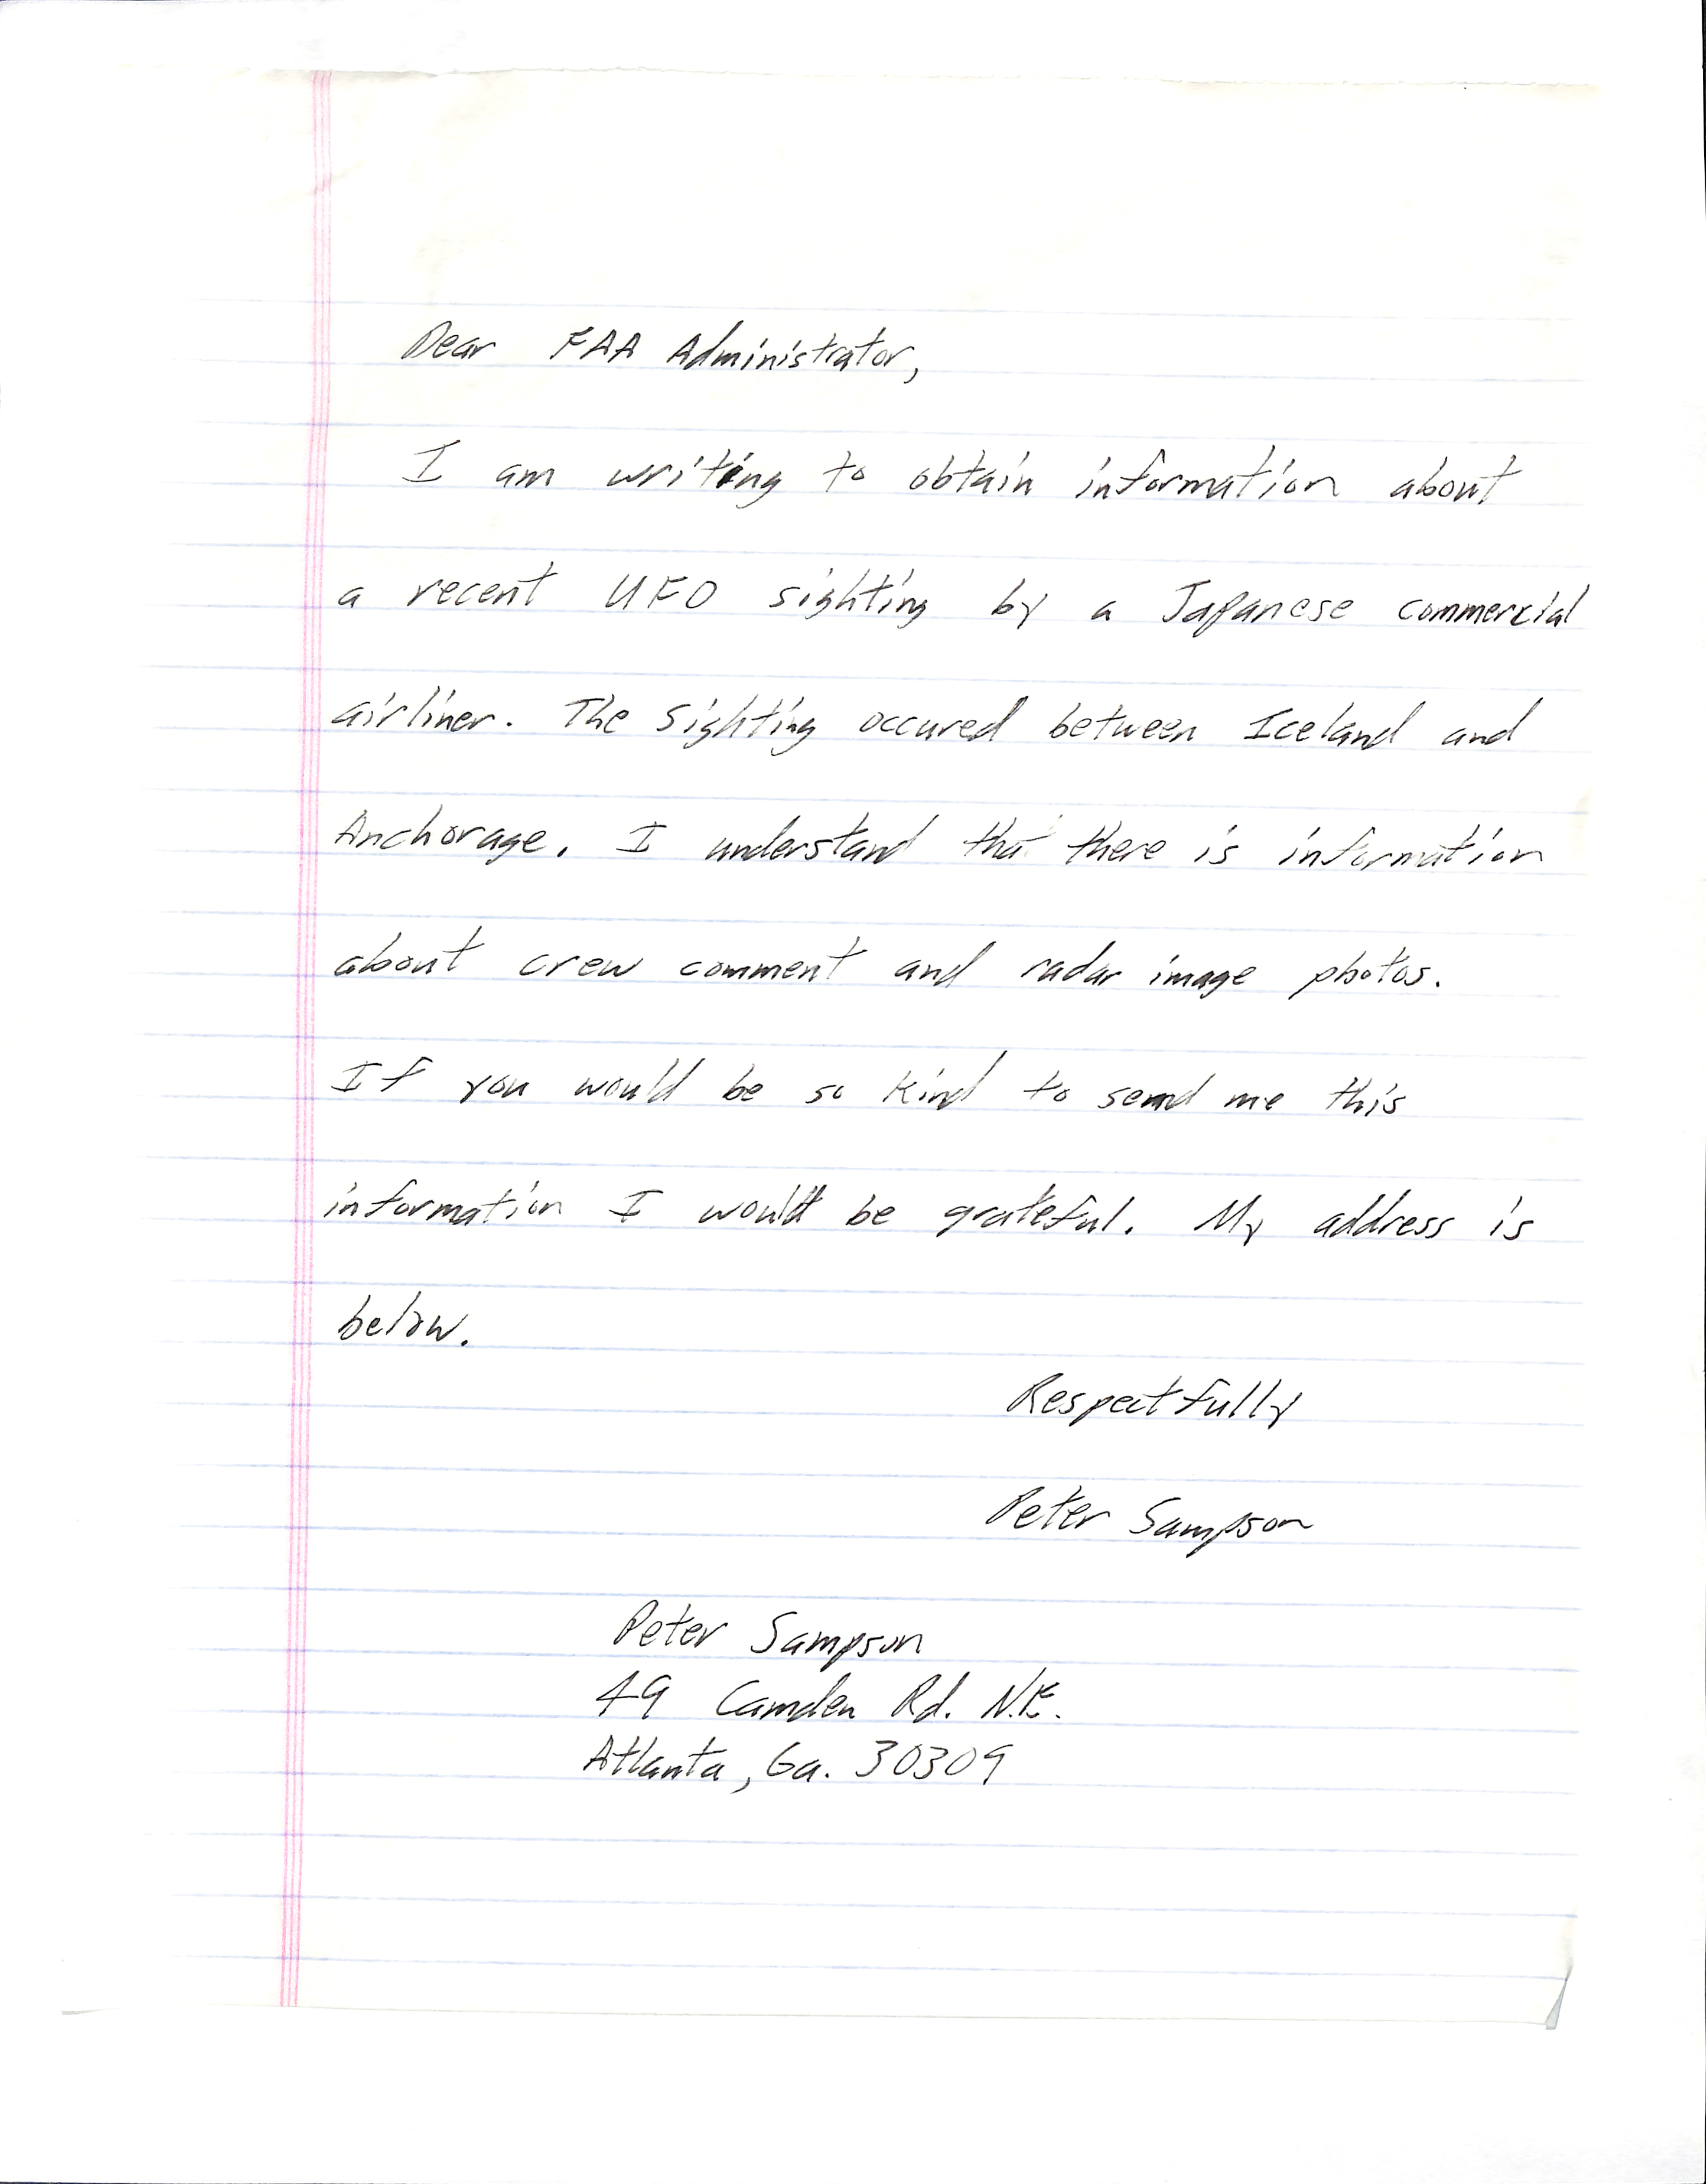 Dear FAA Administrator,
I am writing to obtain information about
a recent UFO sighting by a Japanese commercial
airliner. The Sighting occured between Iceland and
Anchorage. I understand tha there is information
about crew comment and radar image photos.
If you would be so kind to send me this
information I would be grateful. My address is
below.
Respectfully
Peter Sampson
Peter Sampson
49 Camden Rd. N.E.
Atlanta, Ga. 30309